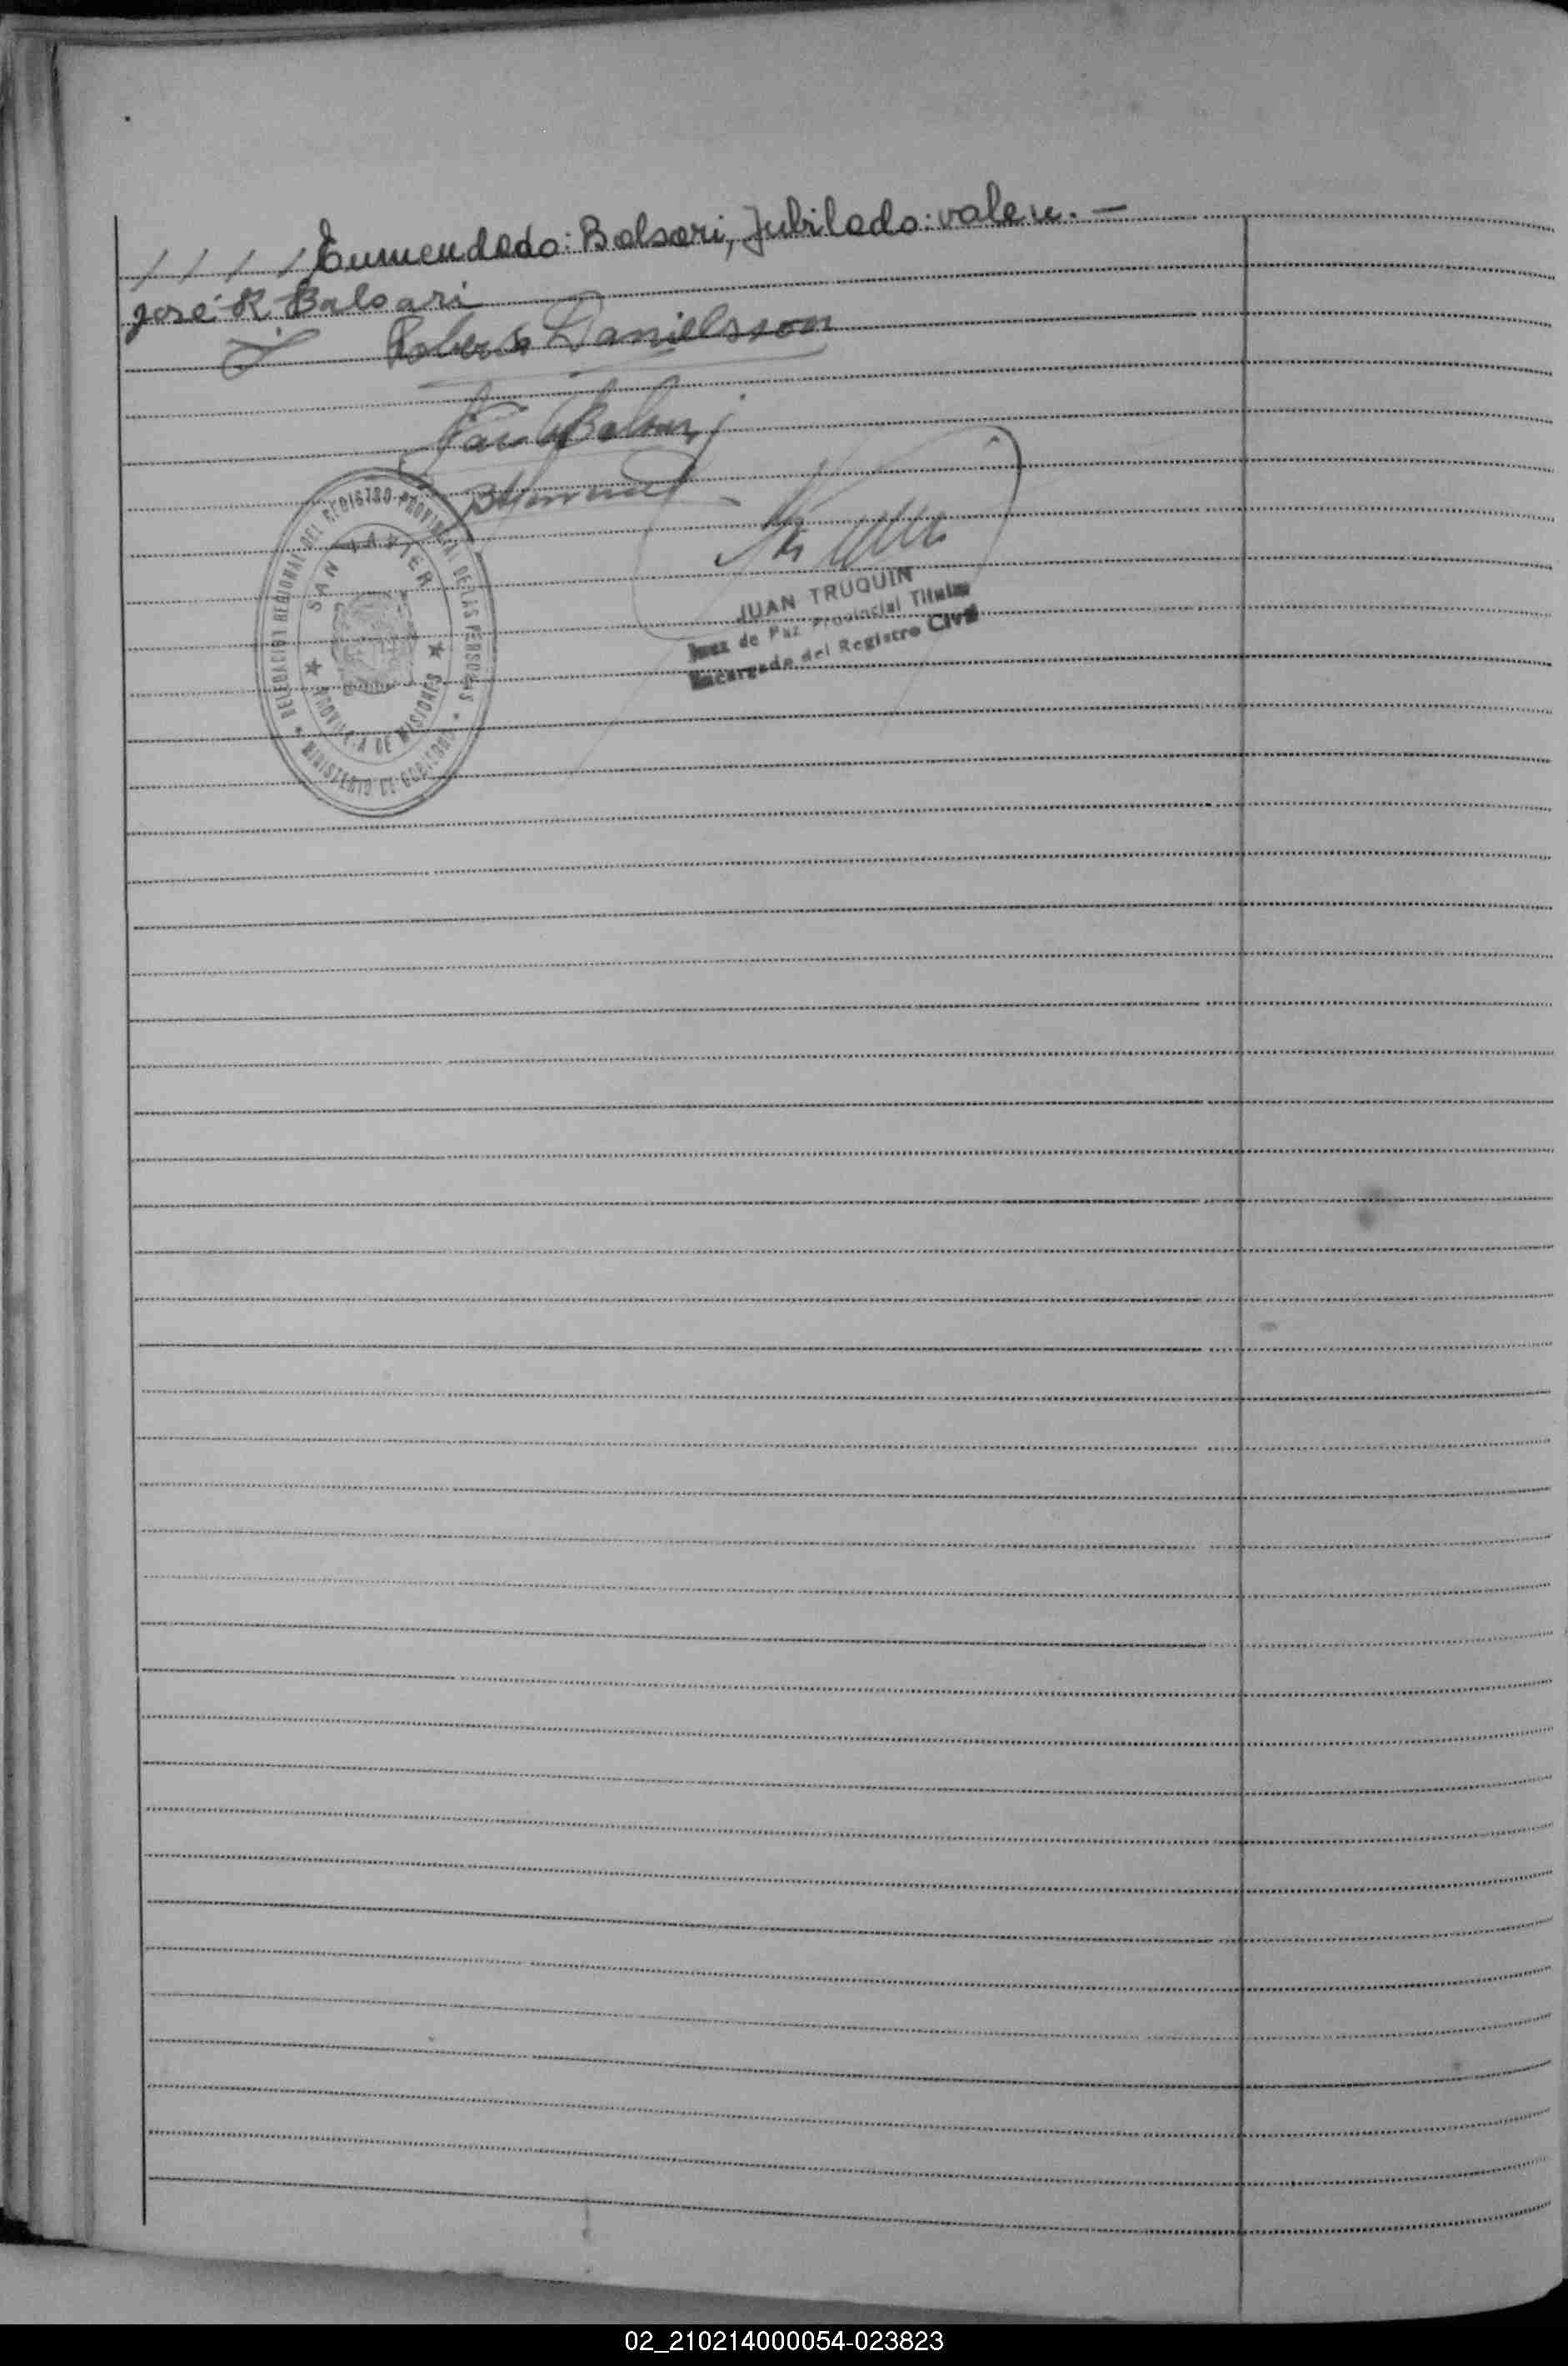 //// Enmendado: Balsari, Jubilado: valen. —
José R Balsari
Roberto Danielsson
Balsari
DELEGACION REGIONAL DEL REGISTRO PROVINCIAL DE LAS PERSONAS
SAN JAVIER
PROVINCIA DE MISIONES
MINISTERIO DE GOBIERNO
JUAN TRUQUIN
Juez de Paz Provincial Titular
Encargado del Registro Civil
02_210214000054-023823